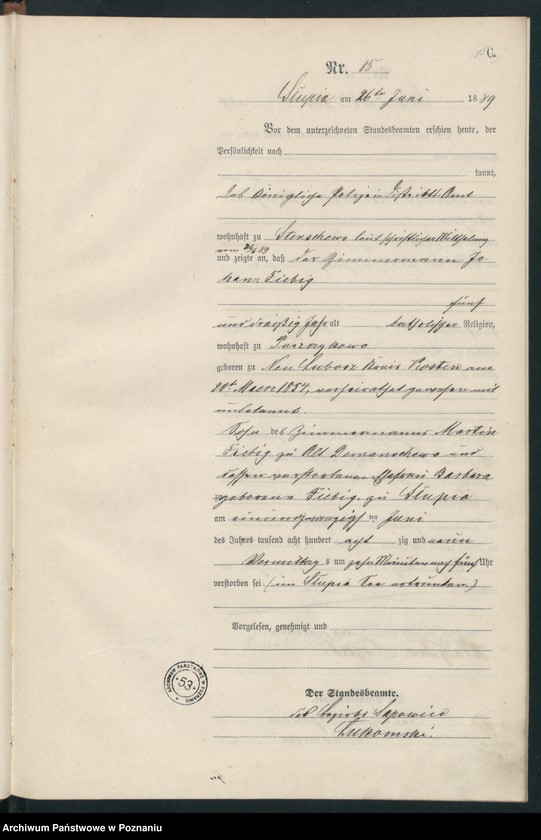 C.
Nr. 15
Słupia am 26ten Juni 1889
Vor dem unterzeichneten Standesbeamten erschien heute, der
Persönlichkeit nach
kannt,
das Königliche Polizei Distrikts Amt
wohnhaft zu Stenschewo laut schriftlicher Mittheilung
vom
und zeigte an, daß der Zimmermann Jo-
hann Fiebig
fünf
und dreißig Jahr alt katholischer Religion,
wohnhaft zu
geboren zu Neu Lubosz Kreis Kosten am
20t Maerz 1854, verheirathet gewesen mit
unbekannt
Sohn des Zimmermanns Martin
Fiebig zu Alt Demanschewo und
dessen verstorbenen Ehefrau Barbara
geborene Fiebig, zu Słupia
am einundzwanzigsten Juni
des Jahres tausend acht hundert achtzig und neun
Vormittags um zehn Minuten nach fünf Uhr
verstorben sei (im Słupia See ertrunken)
Vorgelesen, genehmigt und
Der Standesbeamte.
des Bezirks Sapowice
Łukomski.
ARCHIWUM PAŃSTWOWE W POZNANIU
53
Archiwum Państwowe w Poznaniu